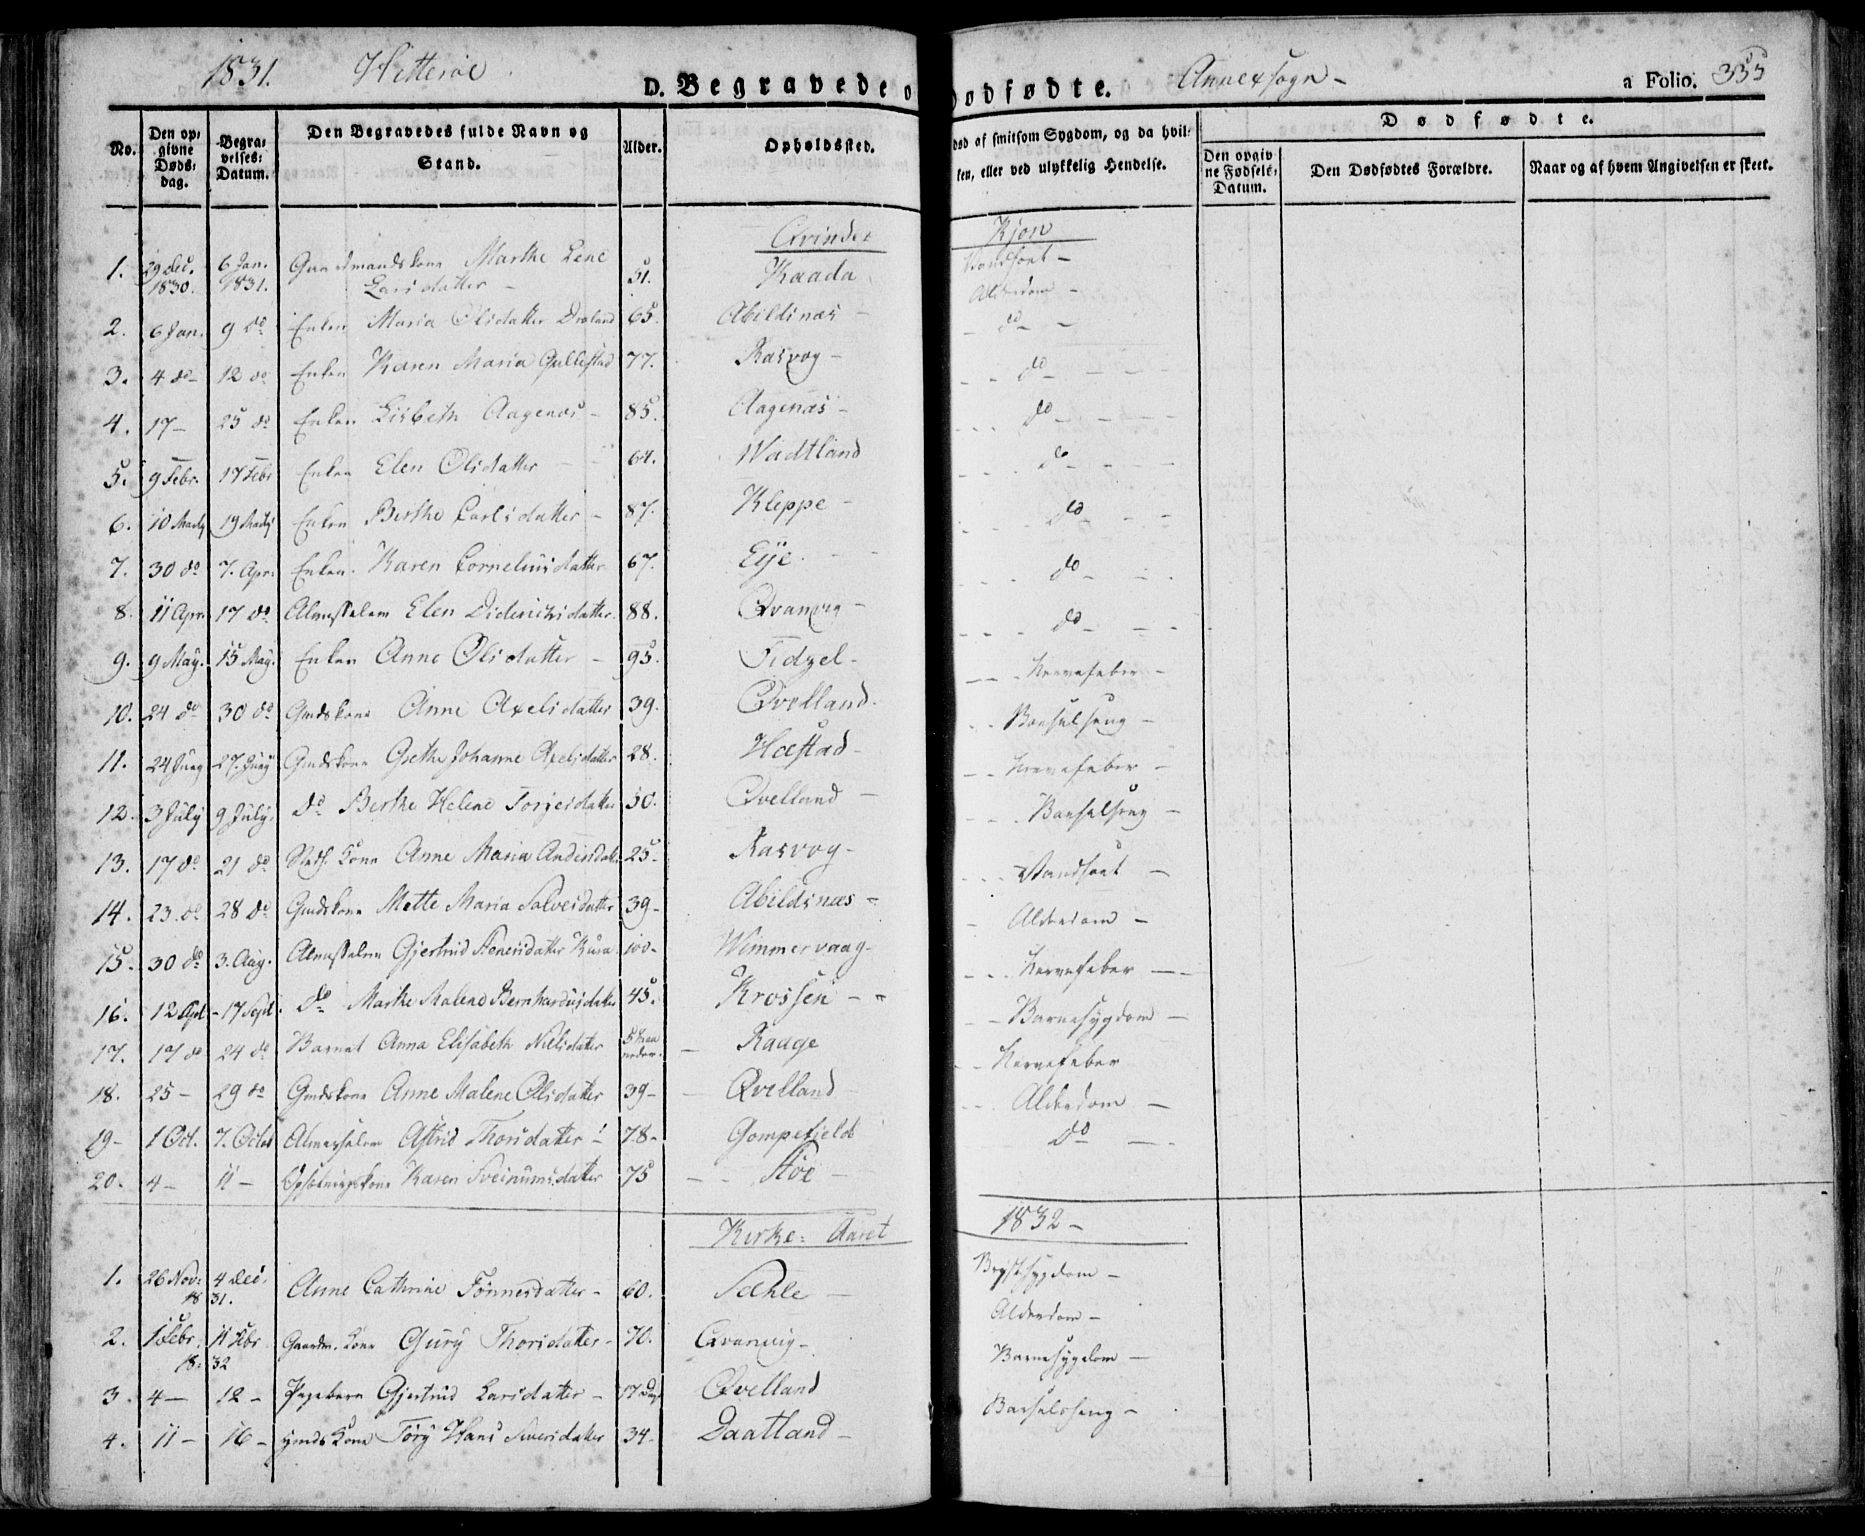 1831. Hitterøe D. Begravede o
No. Den opgivne Døds-dag. Begravelses-Datum. Den Begravedes fulde Navn og Stand. Alder. Opholdssted.
Qvinde-
1. 29 Dec. 1830. 6 Jan. 1831. Gaardmandskone Marthe Lene Larsdatter - 51. Kaada
2. 6 Jan. 9 do Enken Maria Olsdatter 65. Abildsnæs -
3. 4 do - 12 do Enken Karen Maria Gullestad 77. Rasvog -
4. 17 - 25 do Enken Lisbeth Aagenæs - 85. Aagenæs -
5. 9 Febr. 17 Febr Enken Elen Olsdatter - 64. Wadtland
6. 10 Marty 19 Marty Enken Berthe Carlsdatter - 87. Kleppe -
7. 30 do 7. Apr. Enken Karen Corneliusdatter 67. Eye
8. 11 Apr. 17 do Almisselem Elen Diderichsdatter 88. Qvanvig -
9. 9 May. 15 May. Enken Anne Olsdatter - 95. Fidzel -
10. 24 do 30 do Gmdskone Anne Axelsdatter 39. Qvelland.
11. 24 Juny 27. Juny Gmdskone Grethe Johanne Axelsdatter 28. Hæstad -
12. 3 July 9 July. do Berthe Helene Torjesdatter 50. Qvelland -
13. 17 do 21 do Kone Anne Maria Andersdatter 25 - Rasvog -
14. 23. do 28 do Gmdskone Mette Maria Salvesdatter 39 - Abildsnæs -
15. 30 do 3. Aug. Almisselem Gjertrud Stenersdatter 100 - Wimmervaag -
16. 12 Sept - 17 Sept. do Marthe Malene Bernhardusdatter 45. Krossen -
17. 17 do 24 do Barnet Anna Elisabeth Nielsdatter 5 Maaneder. Raage
18. 25 - 29 do Gmdskone Anne Malene Olsdatter 39 - Qvelland
19 - 1 Oct. 7. Octbr Almisselem Astrid Thorsdatter 78 - Gompefjeld
20. 4 - 11 - Karen Sveinumsdatter 75 Støe -
Kirke- Aaret
1. 26 Nov: 4 Dec. 18 31. Anne Cathrine Tønnesdatter - 60. Sæhle -
2. 1 Febr. 11 Febr 18: 32 Gaardm. Kone Gury Thorsdatter - 70. Qvanvig -
3. 4 - 12 - Pigebarn Gjertrud Larsdatter - 17 Dage Qvelland
4. 11 - 16 - Gmds Kone Tøry Hans Siversdatter 34 - Daatland -
ødfødte. Annexsogn - a Folio. 355
død af smitsom Sygdom, og da hvilken, eller ved ulykkelig Hendelse. Dødfødte.
Den opgivne Fødsels-Datum. Den Dødfødtes Forældre. Naar og af hvem Angivelsen er skeet.
Kjøn
Vandsoet -
Alderdom -
do -
do -
do -
do -
do -
do -
do -
Nervefeber -
Barselseng -
Nervefeber -
Barselseng -
Vandsoet -
Alderdom -
Nervefeber -
Barnesygdom -
Nervefeber
Alderdom -
do -
1832 -
Brystsygdom -
Alderdom -
Barnesygdom -
Barselseng -